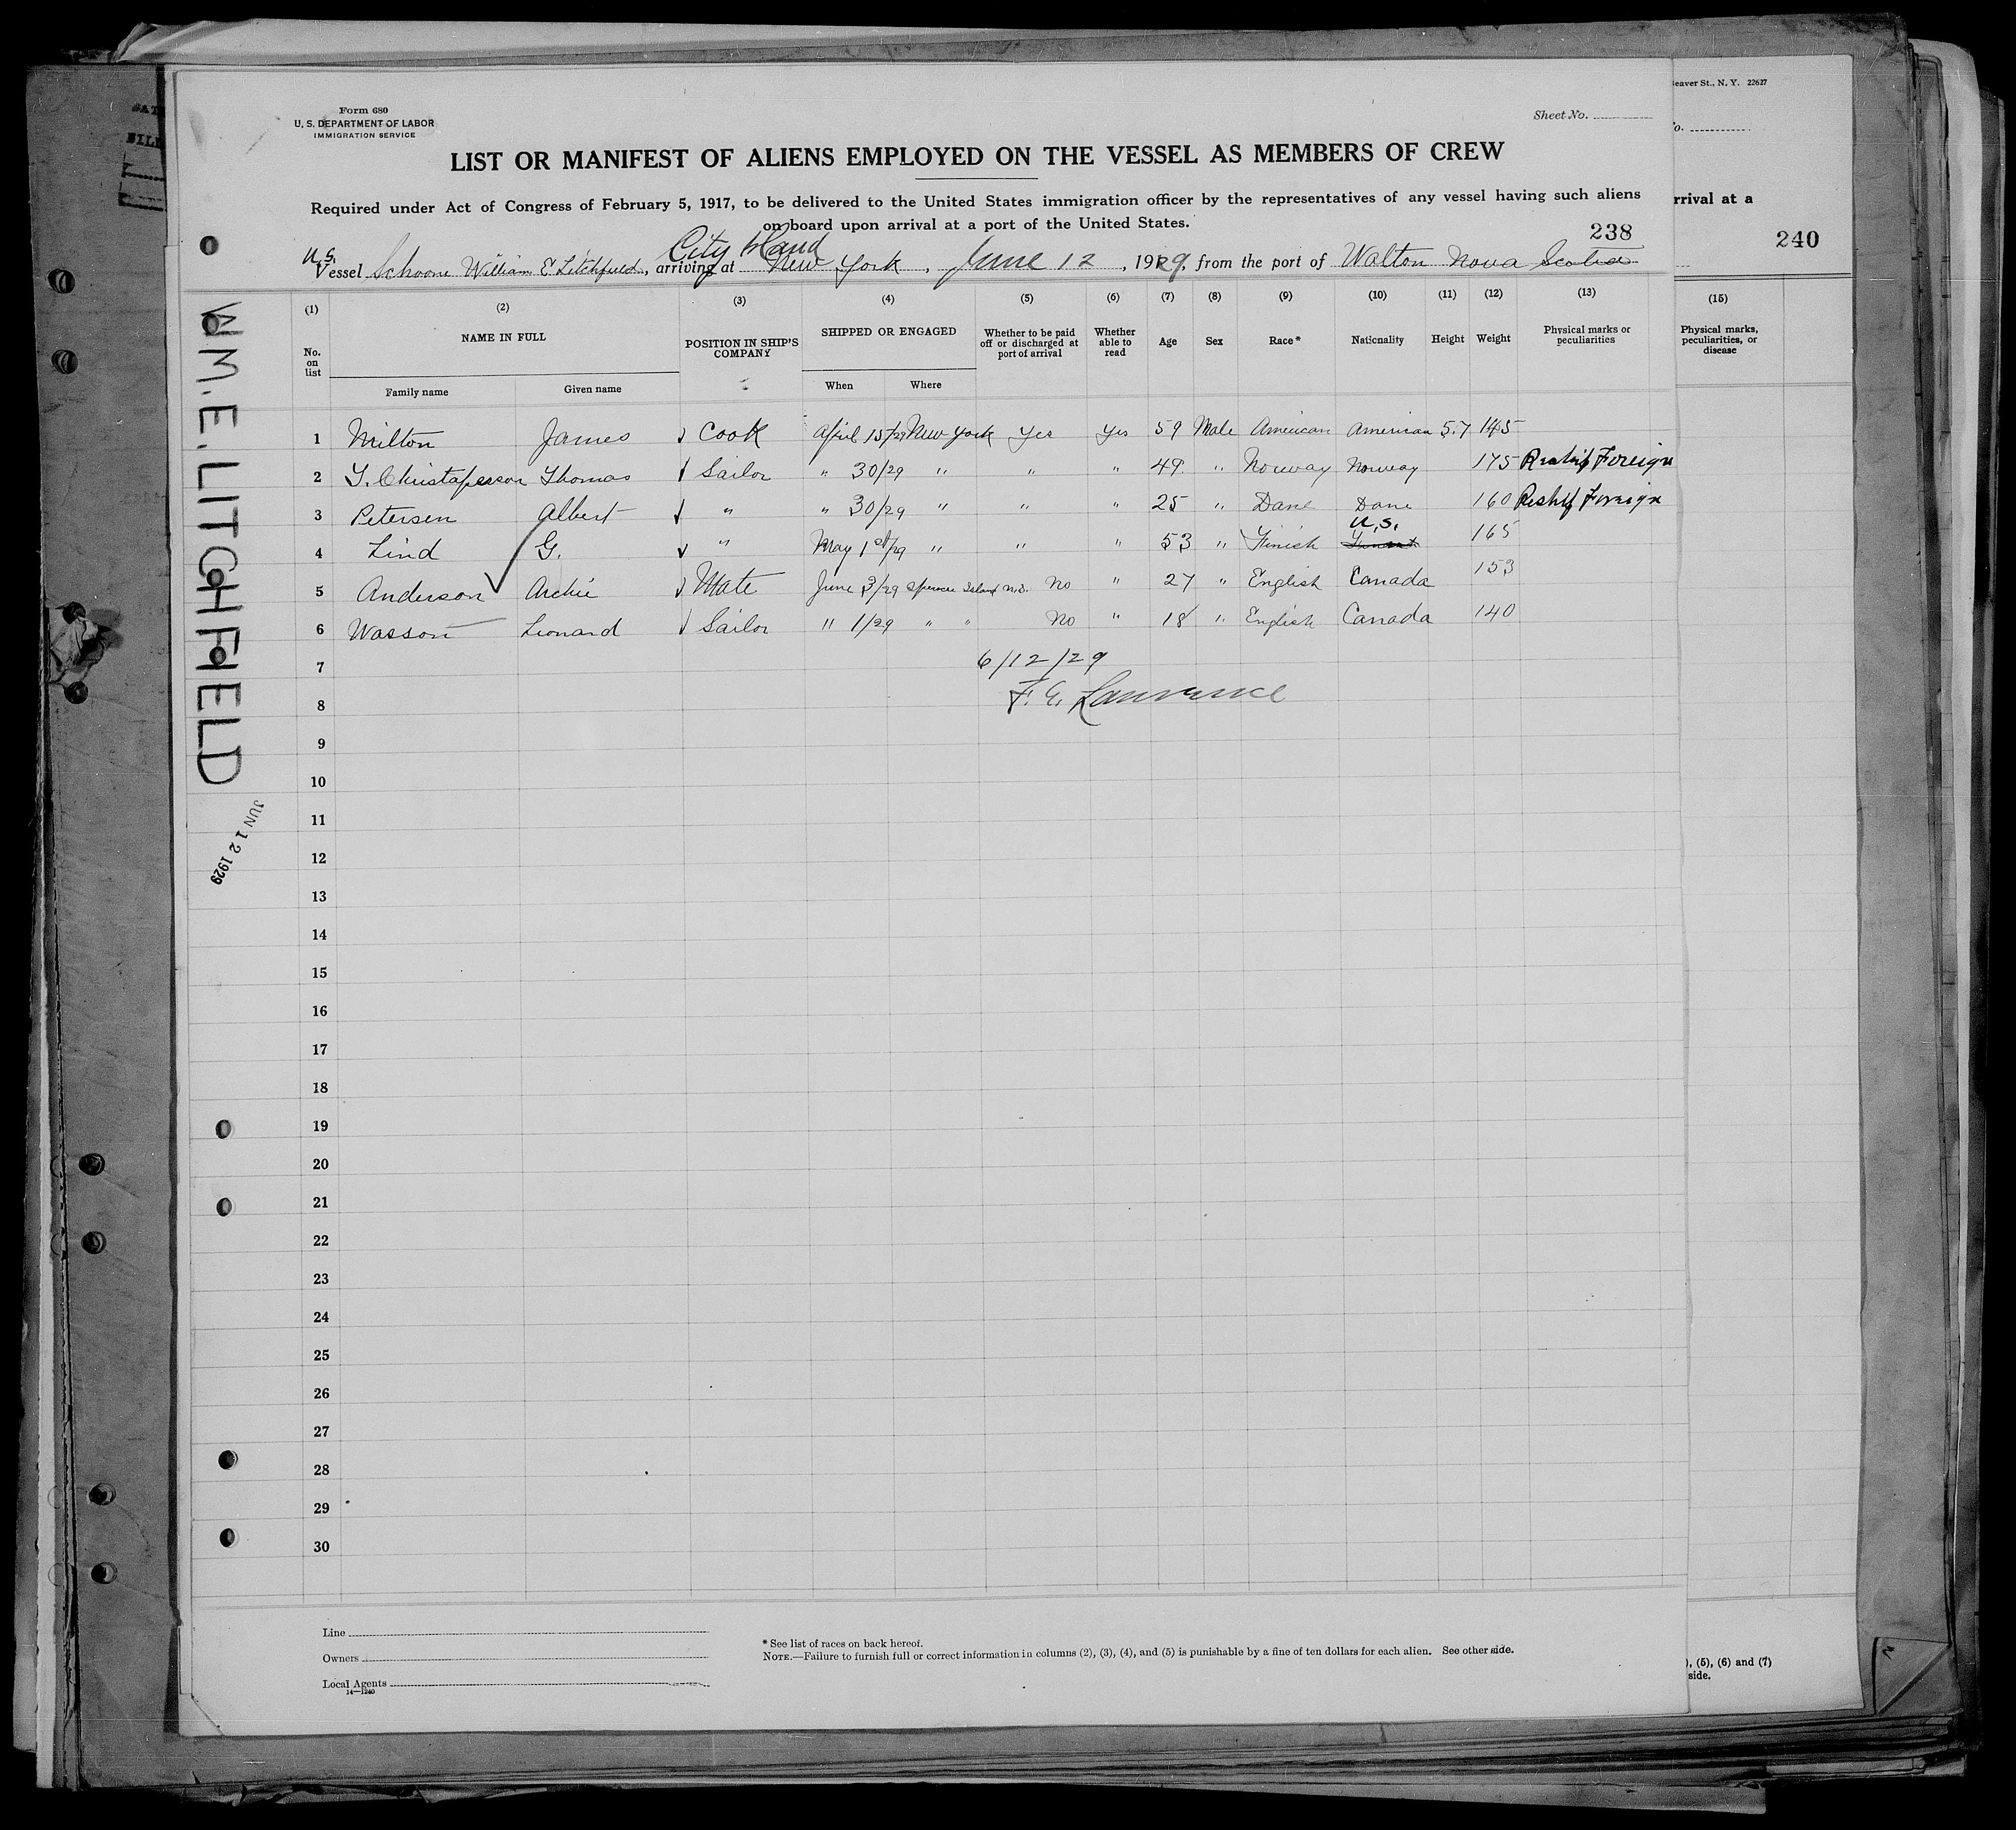 Form 680
U. S. DEPARTMENT OF LABOR
IMMIGRATION SERVICE
Sheet No.
LIST OR MANIFEST OF ALIENS EMPLOYED ON THE VESSEL AS MEMBERS OF CREW
Required under Act of Congress of February 5, 1917, to be delivered to the United States immigration officer by the representatives of any vessel having such aliens
on board upon arrival at a port of the United States.
238
U.S. City Island
Vessel Schoone William E Litchfield, arriving at New York, June 12, 1929, from the port of Walton Nova Scotia
(1) (2) (3) (4) (5) (6) (7) (8) (9) (10) (11) (12) (13)
No. on list NAME IN FULL POSITION IN SHIP'S COMPANY SHIPPED OR ENGAGED Whether to be paid off or discharged at port of arrival Whether able to read Age Sex Race* Nationality Height Weight Physical marks or peculiarities
Family name Given name When Where
1 Milton James Cook April 15/29 New York Yes Yes 59 Male American American 5.7 145
2 T. Christaperson Thomas Sailor " 30/29 " " " 49 " Norway Norway 175 Reship Foreign
3 Petersen Albert " " 30/29 " " " 25 " Dane Dane 160 Reship Foreign
4 Lind G. " May 1st/29 " " " 53 " Finish U.S. 165
5 Anderson Archie Mate June 3/29 Spencer Island N.S. No " 27 " English Canada 153
6 Wasson Leonard Sailor " 1/29 " " No " 18 " English Canada 140
7 6/12/29
8 F. E. Lawrence
9
10
11
12
13
14
15
16
17
18
19
20
21
22
23
24
25
26
27
28
29
30
Line
Owners
Local Agents
14—1240
* See list of races on back hereof.
NOTE.—Failure to furnish full or correct information in columns (2), (3), (4), and (5) is punishable by a fine of ten dollars for each alien. See other side.
WM. E. LITCHFIELD
JUN 12 1929
Beaver St., N. Y. 22627
o.
rrival at a
240
(15)
Physical marks, peculiarities, or disease
), (5), (6) and (7)
side.